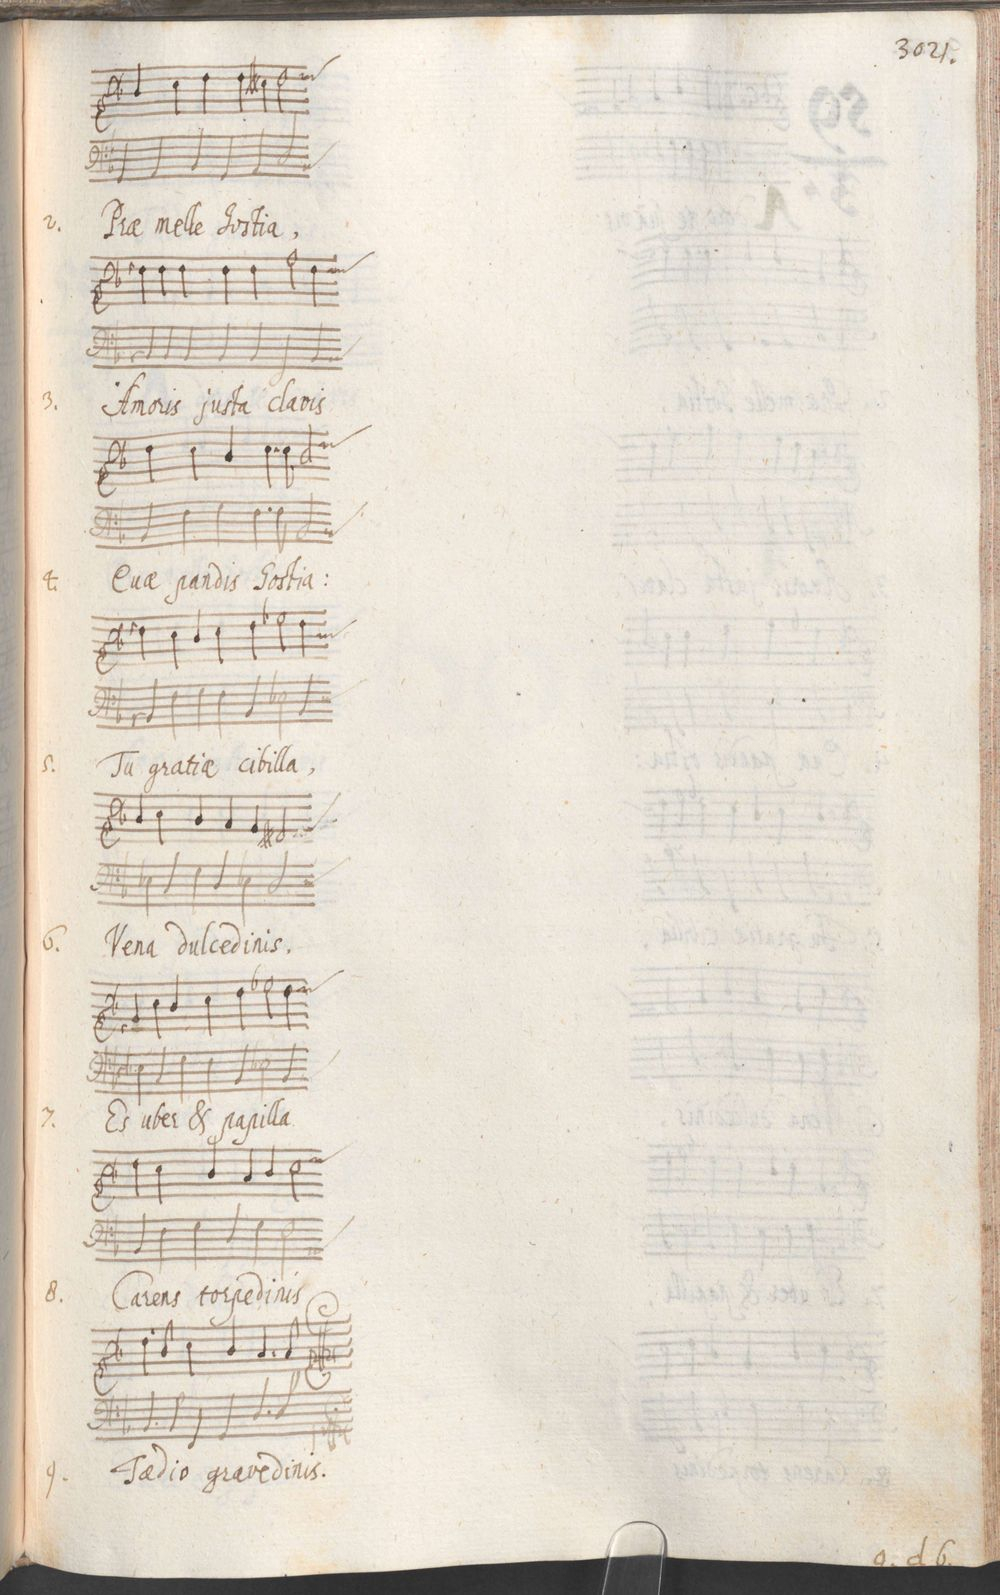 3021.
2. Præ melle Hostia,
3. Amoris justa clavis
4. Quæ pandis Hostia:
5. Tu gratiæ cibilla,
6. Vena dulcedinis.
7. Es uber & papilla
8. Carens torpedinis
9. Tædio gravedinis.